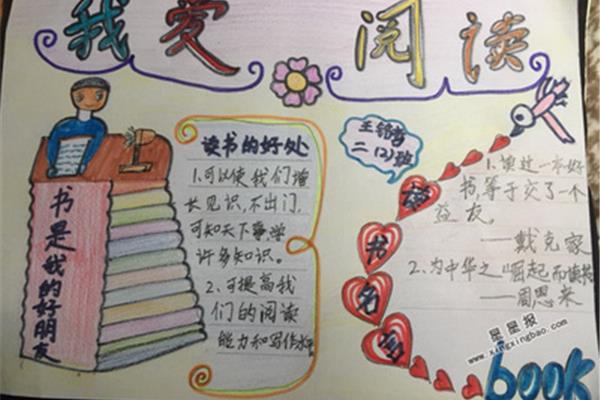 我爱 阅读
书是我的好朋友
读书的好处
1.可以使我们增
长见识,不出门,
可知天下事,学
许多知识。
2.可提高我
们的阅读
能力和写作水平
王
二(2)班
读书名言
1.读过一本好
书,等于交了一个
益友。
——戴克家
2、为中华之崛起而读书
——周恩来
星星报
www.xingxingbao.com
book